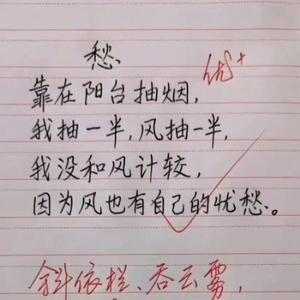 愁
优+
靠在阳台抽烟，
我抽一半，风抽一半，
我没和风计较，
因为风也有自己的忧愁。
斜依栏、吞云雾，